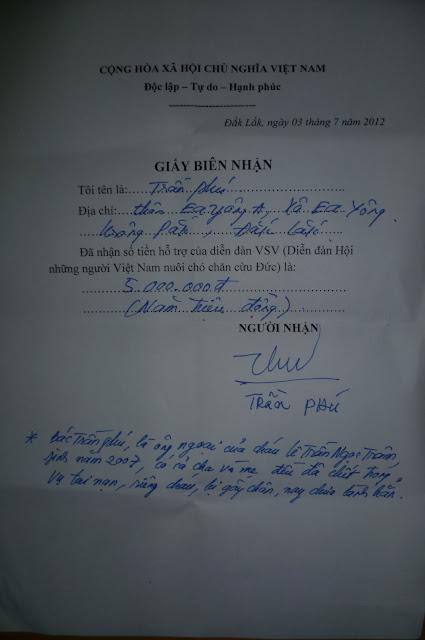 CỘNG HÒA XÃ HỘI CHỦ NGHĨA VIỆT NAM
Độc lập – Tự do – Hạnh phúc
Đăk Lăk, ngày 03 tháng 7 năm 2012
GIẤY BIÊN NHẬN
Tôi tên là:....Trần Phú
Địa chỉ:....thôn Ea Yông A, Xã Ea Yông
Krông Pắk, Đắk Lắk
Đã nhận số tiền hỗ trợ của diễn đàn VSV (Diễn đàn Hội
những người Việt Nam nuôi chó chăn cừu Đức) là:
5.000.000đ
(Năm triệu đồng)
NGƯỜI NHẬN
TRẦN PHÚ
* Bác Trần Phú, là ông ngoại của cháu Lê Trần Ngọc Trâm,
sinh năm 2007, có cả cha và mẹ đều đã chết trong
vụ tai nạn, riêng cháu, bị gãy chân, nay chưa lành hẳn.